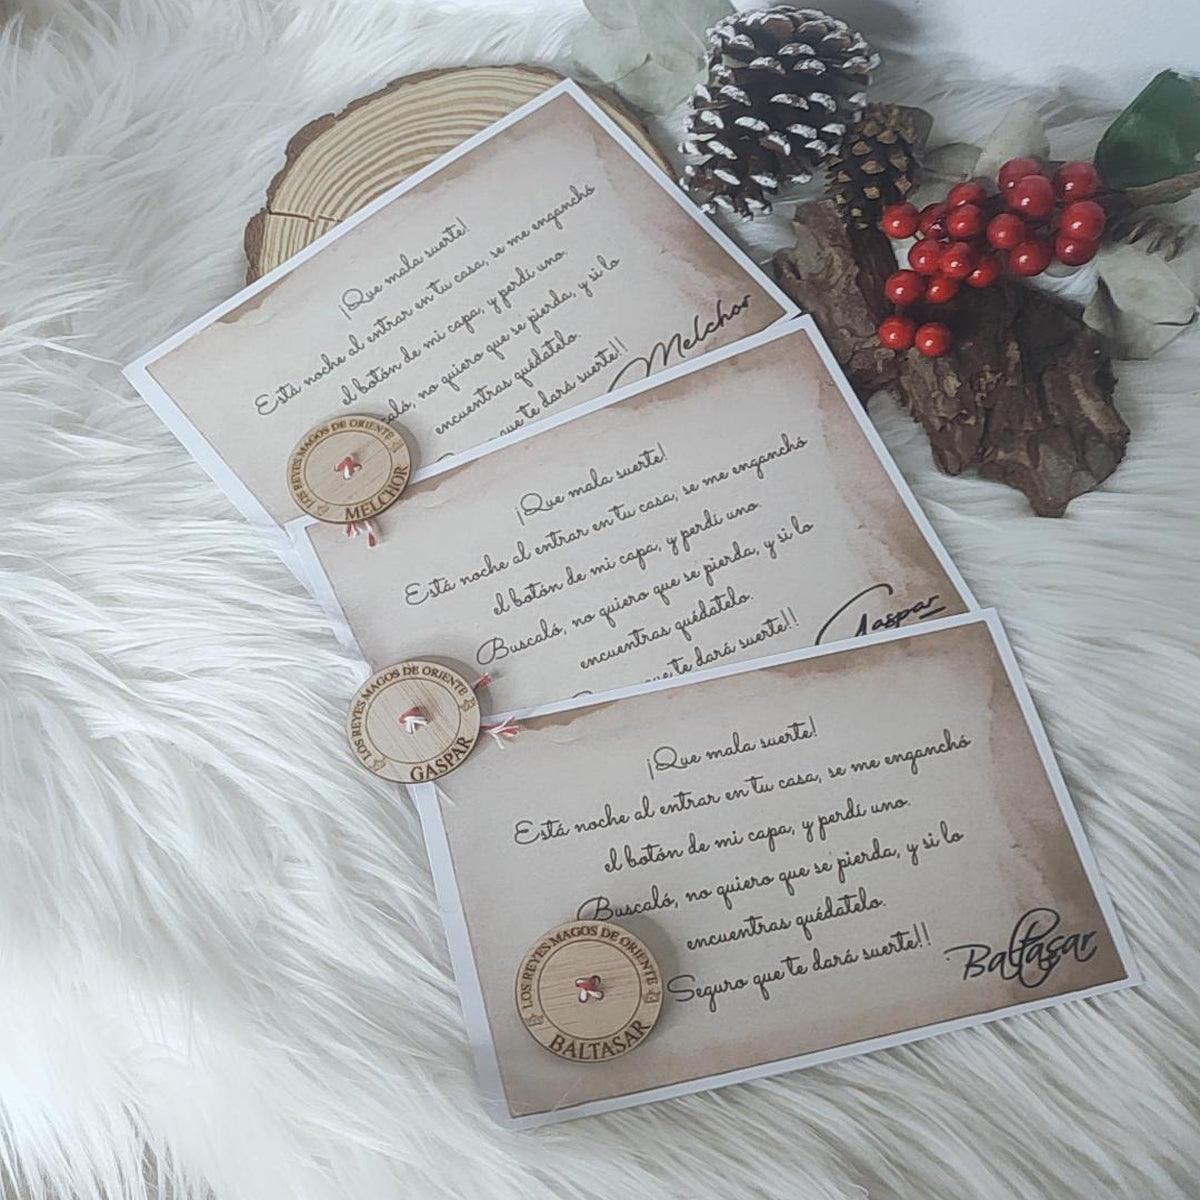 ¡Que mala suerte!
Está noche al entrar en tu casa, se me enganchó
el botón de mi capa, y perdí uno.
no quiero que se pierda, y si lo
encuentras quédatelo.
que te dará suerte!!
Melchor
LOS REYES MAGOS DE ORIENTE
MELCHOR
¡Que mala suerte!
Está noche al entrar en tu casa, se me enganchó
el botón de mi capa, y perdí uno.
Buscaló, no quiero que se pierda, y si lo
encuentras quédatelo.
que te dará suerte!!
Gaspar
LOS REYES MAGOS DE ORIENTE
GASPAR
¡Que mala suerte!
Está noche al entrar en tu casa, se me enganchó
el botón de mi capa, y perdí uno.
Buscaló, no quiero que se pierda, y si lo
encuentras quédatelo.
Seguro que te dará suerte!!
Baltasar
LOS REYES MAGOS DE ORIENTE
BALTASAR